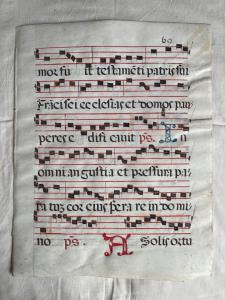 60
mor fu it testamēti patris sui
Francisci ecclesias et domos pau
peres e difi cavit ps. I n
omni angustia et pressura pa
ra tus cor eius spera re in do mi
no ps. A Solis ortu